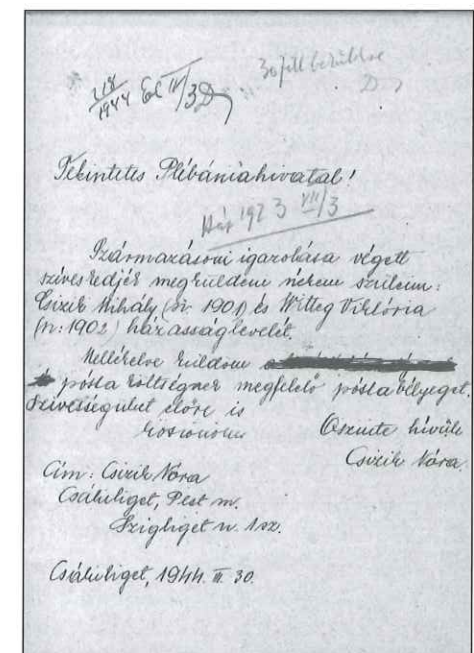 30 fill. beküldve
218
1944 Eil III/3
Tekintetes Plébániahivatal!
Háp 1923 VII/3
Származásom igazolása végett
szíveskedjék megküldeni nékem szüleim:
Csizik Mihály (n: 1901) és Witteg Viktória
(n: 1902) házasságlevelét.
Mellékelve küldöm
posta költségnek megfelelő posta bélyeget.
Szívességüket előre is
köszönöm
Őszinte hívük
Csizik Nóra.
Cím: Csizik Nóra
Csákliget, Pest m.
Szigliget u. 1 sz.
Csákliget, 1944. III. 30.